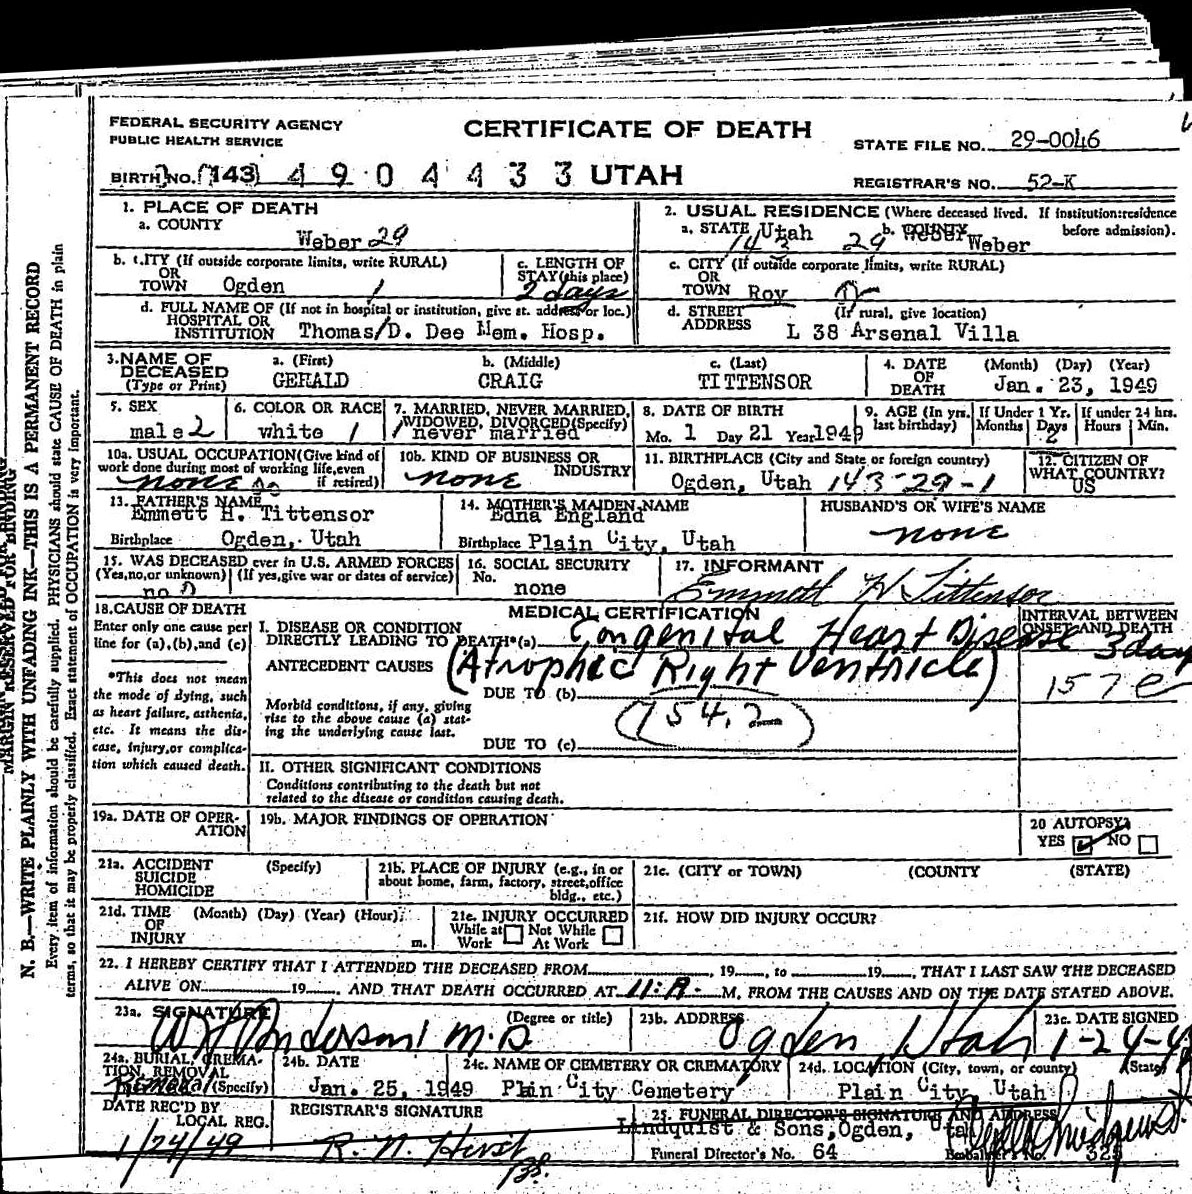 FEDERAL SECURITY AGENCY
PUBLIC HEALTH SERVICE
CERTIFICATE OF DEATH
STATE FILE NO. 29-0046
BIRTH NO. (143) 4 9 0 4 4 3 3 UTAH
REGISTRAR'S NO. 52-K
1. PLACE OF DEATH
a. COUNTY
Weber 29
2. USUAL RESIDENCE (Where deceased lived. If institution:residence before admission).
a. STATE Utah b. COUNTY Weber
29
b. CITY (If outside corporate limits, write RURAL)
OR
TOWN Ogden 1
c. LENGTH OF
STAY (this place)
2 days
c. CITY (If outside corporate limits, write RURAL)
OR
TOWN Roy
d. FULL NAME OF (If not in hospital or institution, give st. address or loc.)
HOSPITAL OR
INSTITUTION Thomas D. Dee Mem. Hosp.
d. STREET (If rural, give location)
ADDRESS L 38 Arsenal Villa
3. NAME OF
DECEASED
(Type or Print)
a. (First)
GERALD
b. (Middle)
CRAIG
c. (Last)
TITTENSOR
4. DATE
OF
DEATH
(Month) (Day) (Year)
Jan. 23, 1949
5. SEX
male 2
6. COLOR OR RACE
white 1
7. MARRIED, NEVER MARRIED,
WIDOWED, DIVORCED (Specify)
never married
8. DATE OF BIRTH
Mo. 1 Day 21 Year 1949
9. AGE (In yrs. last birthday)
If Under 1 Yr.
Months Days
2
If under 24 hrs.
Hours Min.
10a. USUAL OCCUPATION (Give kind of
work done during most of working life, even
if retired)
none
10b. KIND OF BUSINESS OR
INDUSTRY
none
11. BIRTHPLACE (City and State or foreign country)
Ogden, Utah 143-29-1
12. CITIZEN OF
WHAT COUNTRY?
US
13. FATHER'S NAME
Emmett H. Tittensor
Birthplace Ogden, Utah
14. MOTHER'S MAIDEN NAME
Edna England
Birthplace Plain City, Utah
HUSBAND'S OR WIFE'S NAME
none
15. WAS DECEASED ever in U.S. ARMED FORCES
(Yes, no, or unknown) (If yes, give war or dates of service)
no
16. SOCIAL SECURITY
No.
none
17. INFORMANT
Emmett H Tittensor
18. CAUSE OF DEATH
Enter only one cause per
line for (a), (b), and (c)
*This does not mean
the mode of dying, such
as heart failure, asthenia,
etc. It means the dis-
case, injury, or complica-
tion which caused death.
MEDICAL CERTIFICATION
I. DISEASE OR CONDITION
DIRECTLY LEADING TO DEATH*(a) Congenital Heart Disease
ANTECEDENT CAUSES (Atrophic Right Ventricle)
DUE TO (b)
Morbid conditions, if any, giving
rise to the above cause (a) stat-
ing the underlying cause last.
(154.2)
DUE TO (c)
INTERVAL BETWEEN
ONSET AND DEATH
3 days
157
II. OTHER SIGNIFICANT CONDITIONS
Conditions contributing to the death but not
related to the disease or condition causing death.
19a. DATE OF OPER-
ATION
19b. MAJOR FINDINGS OF OPERATION
20 AUTOPSY?
YES NO
21a. ACCIDENT
SUICIDE
HOMICIDE
(Specify)
21b. PLACE OF INJURY (e.g., in or
about home, farm, factory, street, office
bldg., etc.)
21c. (CITY OR TOWN) (COUNTY) (STATE)
21d. TIME (Month) (Day) (Year) (Hour)
OF
INJURY m.
21e. INJURY OCCURRED
While at Not While
Work At Work
21f. HOW DID INJURY OCCUR?
22. I HEREBY CERTIFY THAT I ATTENDED THE DECEASED FROM, 19, to 19, THAT I LAST SAW THE DECEASED
ALIVE ON 19, AND THAT DEATH OCCURRED AT 11:A M, FROM THE CAUSES AND ON THE DATE STATED ABOVE.
23a. SIGNATURE (Degree or title)
Anderson M.D.
23b. ADDRESS
Ogden, Utah
23c. DATE SIGNED
1-24-49
24a. BURIAL, CREMA-
TION, REMOVAL
Removal (Specify)
24b. DATE
Jan. 25, 1949
24c. NAME OF CEMETERY OR CREMATORY
Plain City Cemetery
24d. LOCATION (City, town, or county) (State)
Plain City, Utah
DATE REC'D BY
LOCAL REG.
1/24/49
REGISTRAR'S SIGNATURE
R. N. Hirst
25. FUNERAL DIRECTOR'S SIGNATURE AND ADDRESS
Lindquist & Sons, Ogden, Utah
Funeral Director's No. 64 Embalmer's No.
MARGIN RESERVED FOR BINDING
N. B.—WRITE PLAINLY WITH UNFADING INK—THIS IS A PERMANENT RECORD
Every item of information should be carefully supplied. PHYSICIANS should state CAUSE OF DEATH in plain
terms, so that it may be properly classified. Exact statement of OCCUPATION is very important.